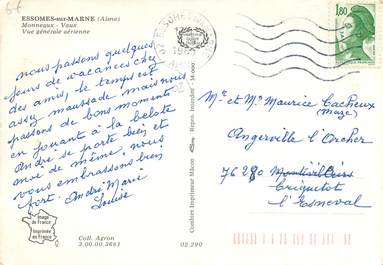 ESSOMES-sur-MARNE (Aisne)
Monneaux - Vaux
Vue générale aérienne
nous passons quelques
jours de vacances chez
des amis, le temps est
assez maussade mais nous
passons de bons moments
en jouant à la belote
André se porte bien et
moi de même, nous
vous embrassons bien
fort. André Marie
Louise
image
de France
Imprimée
en France
Coll. Agron
3.00.00.3661
02.290
Combier Imprimeur Mâcon
Repro. Interdite
14-000
1,80
Mr et Mme Maurice Cacheux
(Maze)
Angerville l'Orcher
76280 Montivilliers
Criquetot
l'Esneval